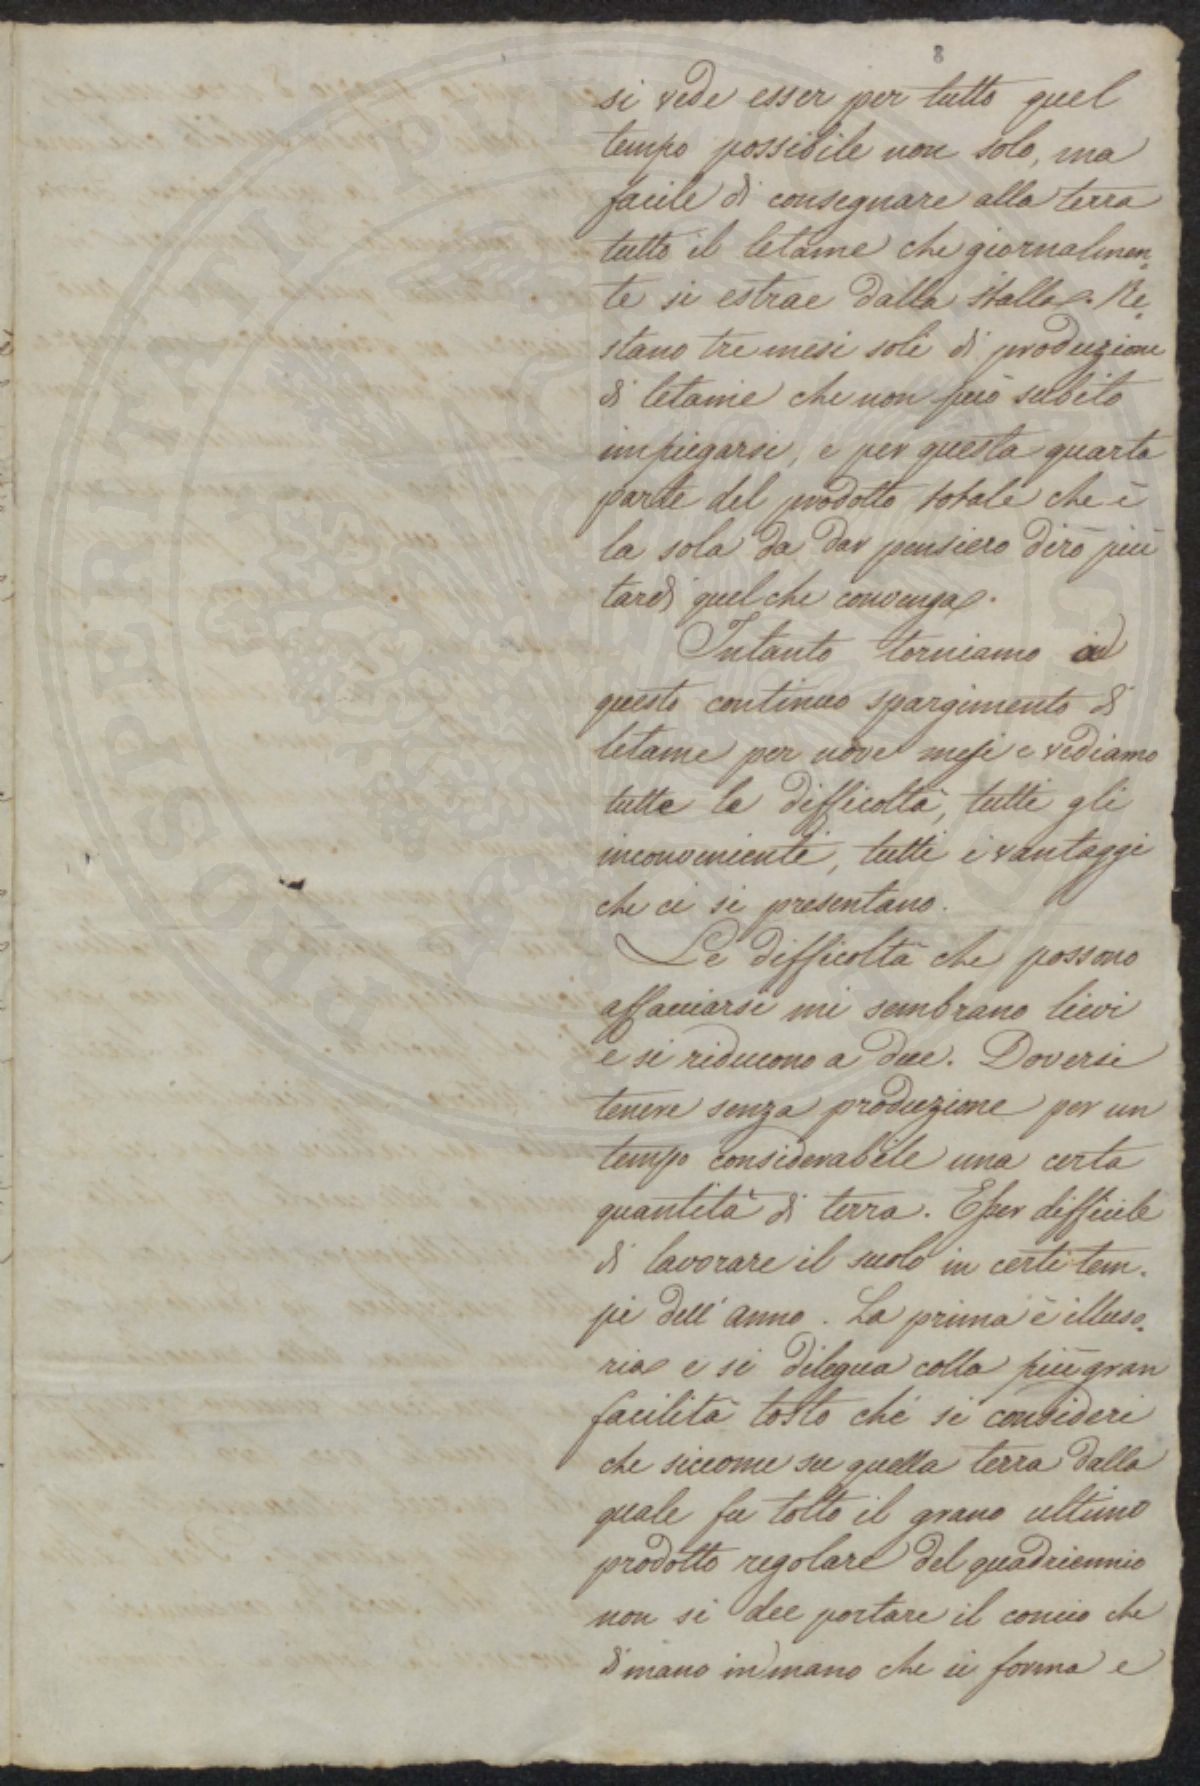 8
si vede esser per tutto quel
tempo possibile non solo, ma
facile di consegnare alla terra
tutto il letame che giornalmen-
te si estrae dalla stalla. Re-
stano tre mesi soli di produzione
di letame che non può subito
impiegarsi, e per questa quarta
parte del prodotto totale che è
la sola da dar pensiero dirò più
tardi quel che convenga.
Intanto torniamo a
questo continuo spargimento di
letame per nove mesi e vediamo
tutte le difficoltà, tutti gli
inconvenienti, tutti i vantaggi
che ci si presentano.
Le difficoltà che possono
affacciarsi mi sembrano lievi
e si riducono a due. Doversi
tenere senza produzione per un
tempo considerabile una certa
quantità di terra. Esser difficile
di lavorare il suolo in certi tem-
pi dell'anno. La prima è illuso-
ria e si dilegua colla più gran
facilità tosto che si consideri
che siccome su quella terra dalla
quale fu tolto il grano ultimo
prodotto regolare del quadriennio
non si dee portare il concio che
di mano in mano che si forma e
PROSPERITATI PUBLICAE